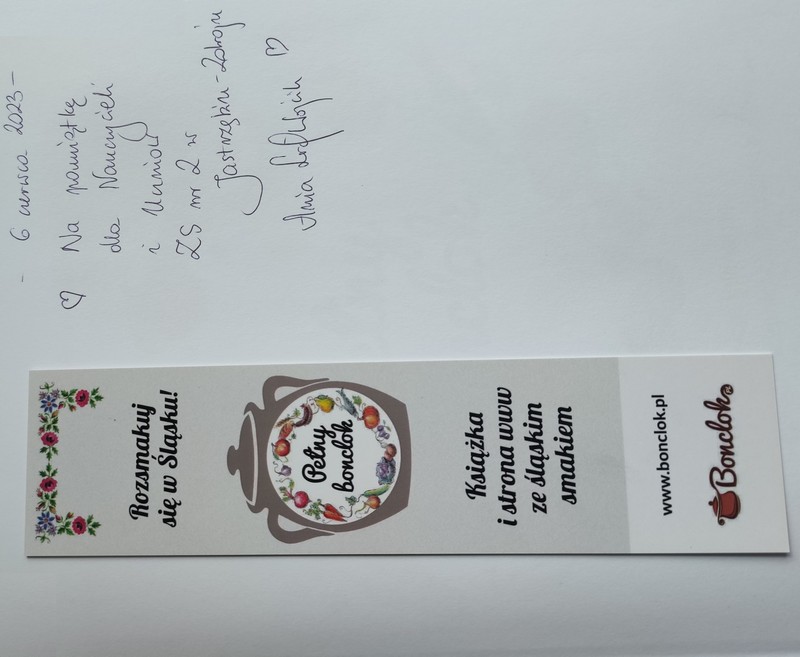 - 6 czerwca 2023 -
♡ Na pamiątkę
dla Nauczycieli
i Uczniów
ZS nr 2 w
Jastrzębiu-Zdroju
Ania ♡
Rozsmakuj
się w Śląsku!
Pełny
bonclok
Książka
i strona www
ze śląskim
smakiem
www.bonclok.pl
Bonclok